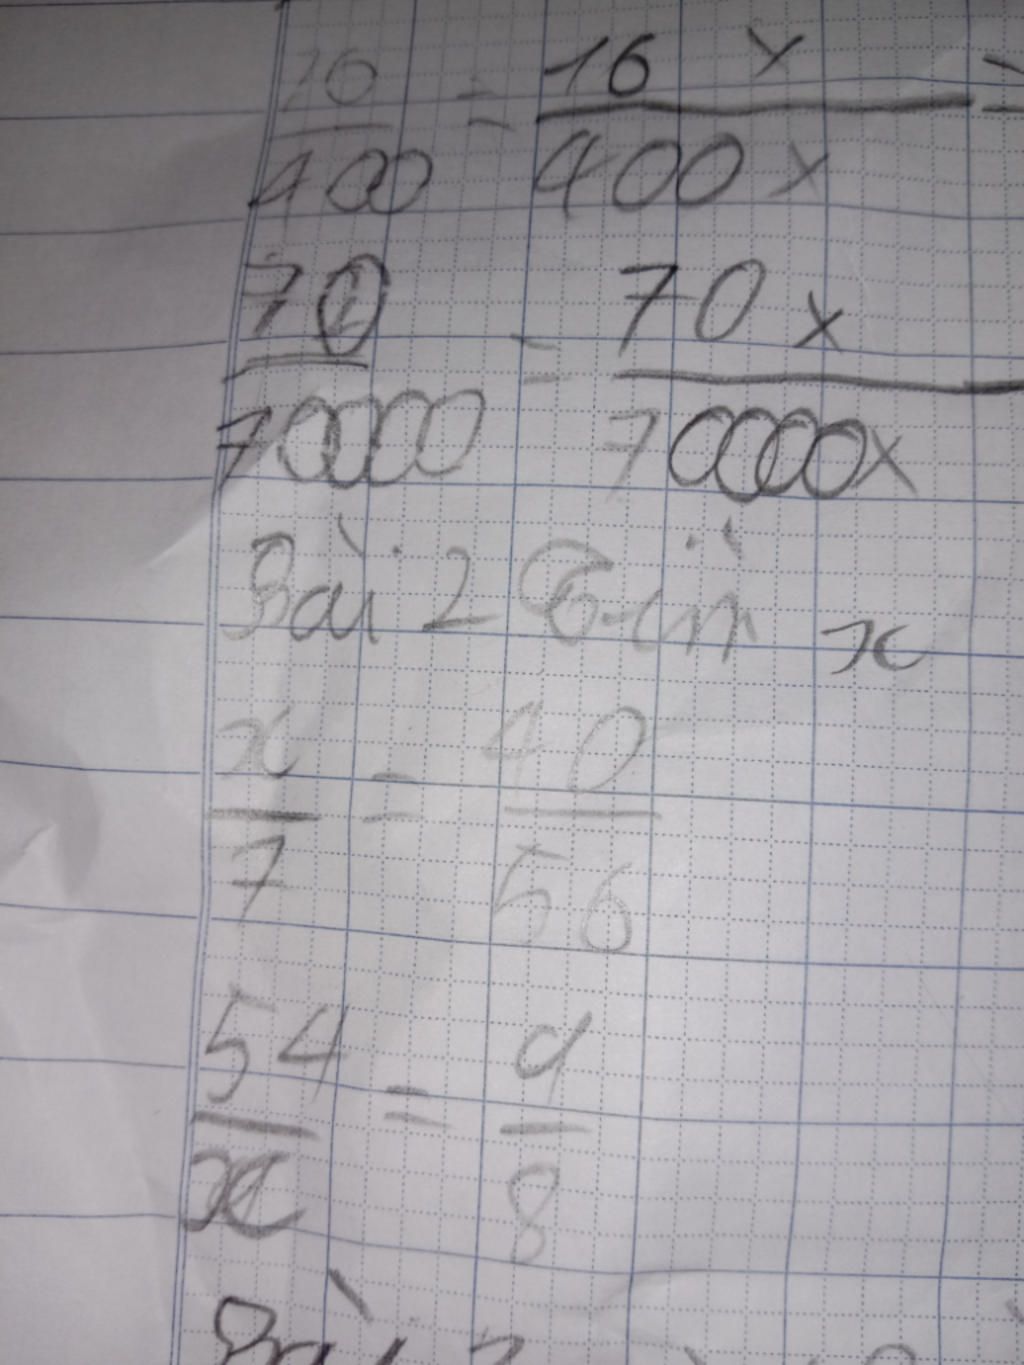 16/400 = 16 x / 400 x =
70/70000 = 70 x / 70000 x
Bài 2 Tìm x
x/7 = 40/56
54/x = 9/8
Bài